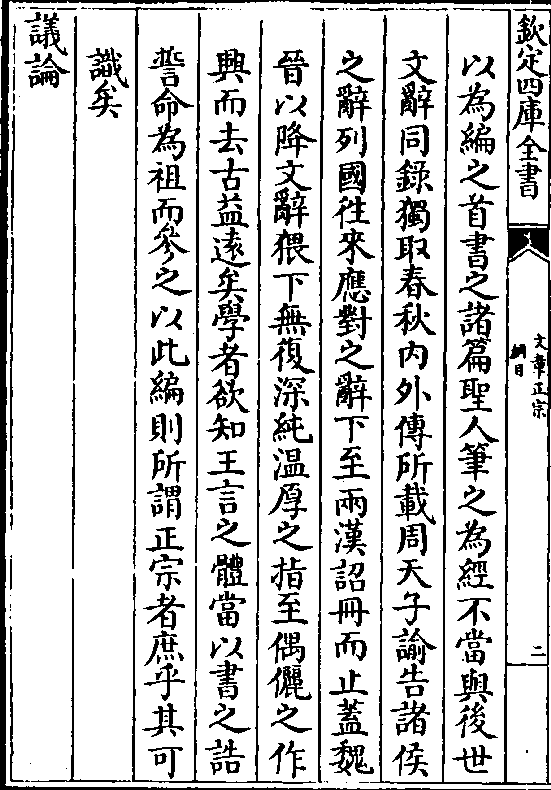 欽定四庫全書
文章正宗
綱目
二
以為編之首書之諸篇聖人筆之為經不當與後世
文辭同錄獨取春秋内外傳所載周天子諭告諸侯
之辭列國徃來應對之辭下至兩漢詔冊而止蓋魏
晉以降文辭猥下無復深純温厚之指至偶儷之作
興而去古益逺矣學者欲知王言之體當以書之誥
誓命為祖而參之以此編則所謂正宗者庶乎其可
識矣
議論